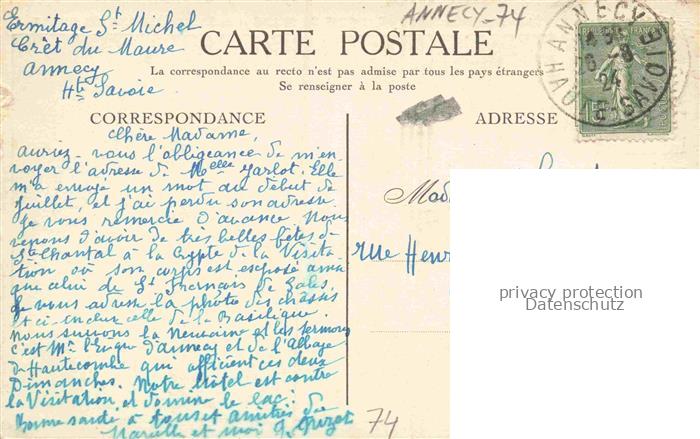 Ermitage St Michel
Crêt du Maure
Annecy
Hte Savoie
ANNECY-74
CARTE POSTALE
La correspondance au recto n'est pas admise par tous les pays étrangers
Se renseigner à la poste
CORRESPONDANCE
Chère Madame,
auriez-vous l'obligeance de m'en-
voyer l'adresse de Melle Jarlot. Elle
m'a envoyé un mot au début de
juillet, et j'ai perdu son adresse
Je vous remercie d'avance Nous
venons d'avoir de très belles fêtes de
Ste Chantal à la Crypte de la Visita-
tion où son corps est exposé ainsi
que celui de St François de Sales.
Je vous adresse la photo des châsses
et ci-inclus celle de la Basilique.
Nous suivons la Neuvaine et les sermons
c'est Mr l'Evêque d'Annecy et de l'Abbaye
de Hautecombe qui officient ces deux
Dimanches. Notre hôtel est contre
la Visitation et domine le lac.
Bonne santé à tous et amitiés de
et moi
74
ADRESSE
Mad
rue Henr
ANNECY
HTE SAVOIE
privacy protection
Datenschutz